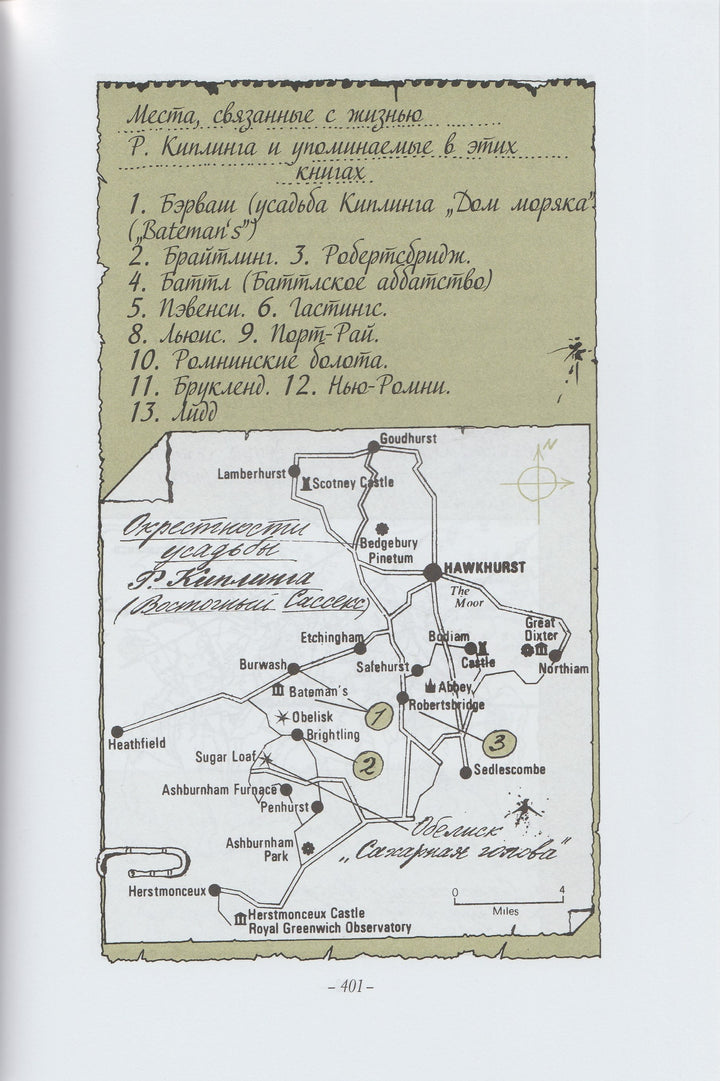 Места, связанные с жизнью
Р. Киплинга и упоминаемые в этих
книгах
1. Бэрваш (усадьба Киплинга „Дом моряка"
(„Bateman's")
2. Брайтлинг. 3. Робертсбридж.
4. Баттл (Баттлское аббатство)
5. Пэвенси. 6. Гастингс.
8. Льюис. 9. Порт-Рай.
10. Ромнинские болота.
11. Брукленд. 12. Нью-Ромни.
13. Лидд
Goudhurst
N
Lamberhurst
Scotney Castle
Окрестности
усадьбы
Р. Киплинга
(Восточный Сассекс)
Bedgebury
Pinetum
HAWKHURST
The
Moor
Great
Dixter
Etchingham
Bodiam
Castle
Burwash
Safehurst
Northiam
Bateman's
Abbey
Robertsbridge
1
Obelisk
Brightling
3
Heathfield
Sugar Loaf
2
Sedlescombe
Ashburnham Furnace
Penhurst
Обелиск
„Сахарная голова"
Ashburnham
Park
Herstmonceux
0 4
Miles
Herstmonceux Castle
Royal Greenwich Observatory
– 401 –